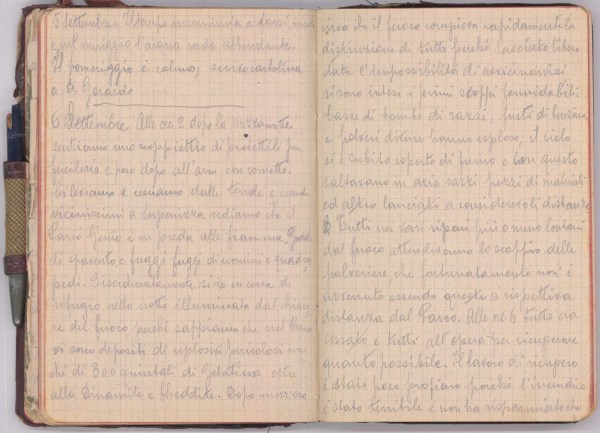 5 Settembre
e nel meriggio l'acqua cade abbondante.
Il pomeriggio è calmo; scrivo cartolina
a D. Gerardo
6 Settembre. Alle ore 2 dopo la mezzanotte,
sentiamo uno scoppiettio di proiettili per
fucileria e poco dopo all'armi con cornette.
Ci leviamo e usciamo dalle tende e
vicinissimi a vediamo che il
Parco Genio è in preda alle fiamme. Grida
di spavento e fuggi fuggi di uomini e quadru
pedi. Disordinatamente si va in cerca di
rifugio nella notte illuminata dal
re del fuoco perché sappiamo che nel Parco
vi sono depositi di esplosivi pericolosi
di 300 quintali di Gelatina oltre
alla Dinamite e Cheddite. Dopo mezz'ora
circa che il fuoco compieva rapidamente la
distruzione di tutto perché lasciato libero
data l'impossibilità di avvicinarvisi
si sono intesi i primi scoppi formidabili
casse di bombe di razzi, fusti di benzina
e petardi diversi hanno esploso, il cielo
si è subito coperto di fumo e con questo
saltavano in aria razzi pezzi di materiali
ed altro lanciati a considerevoli distanze.
Tutti nei vari ripari più o meno lontani
dal fuoco attendevamo lo scoppio delle
polveriere che fortunatamente non è
avvenuto essendo queste a rispettiva
distanza dal Parco. Alle ore 6 tutto era
cessato e tutti all'opera per ricuperare
quanto possibile. Il lavoro di ricupero
è stato poco proficuo poiché l'incendio
è stato terribile e non ha risparmiato che